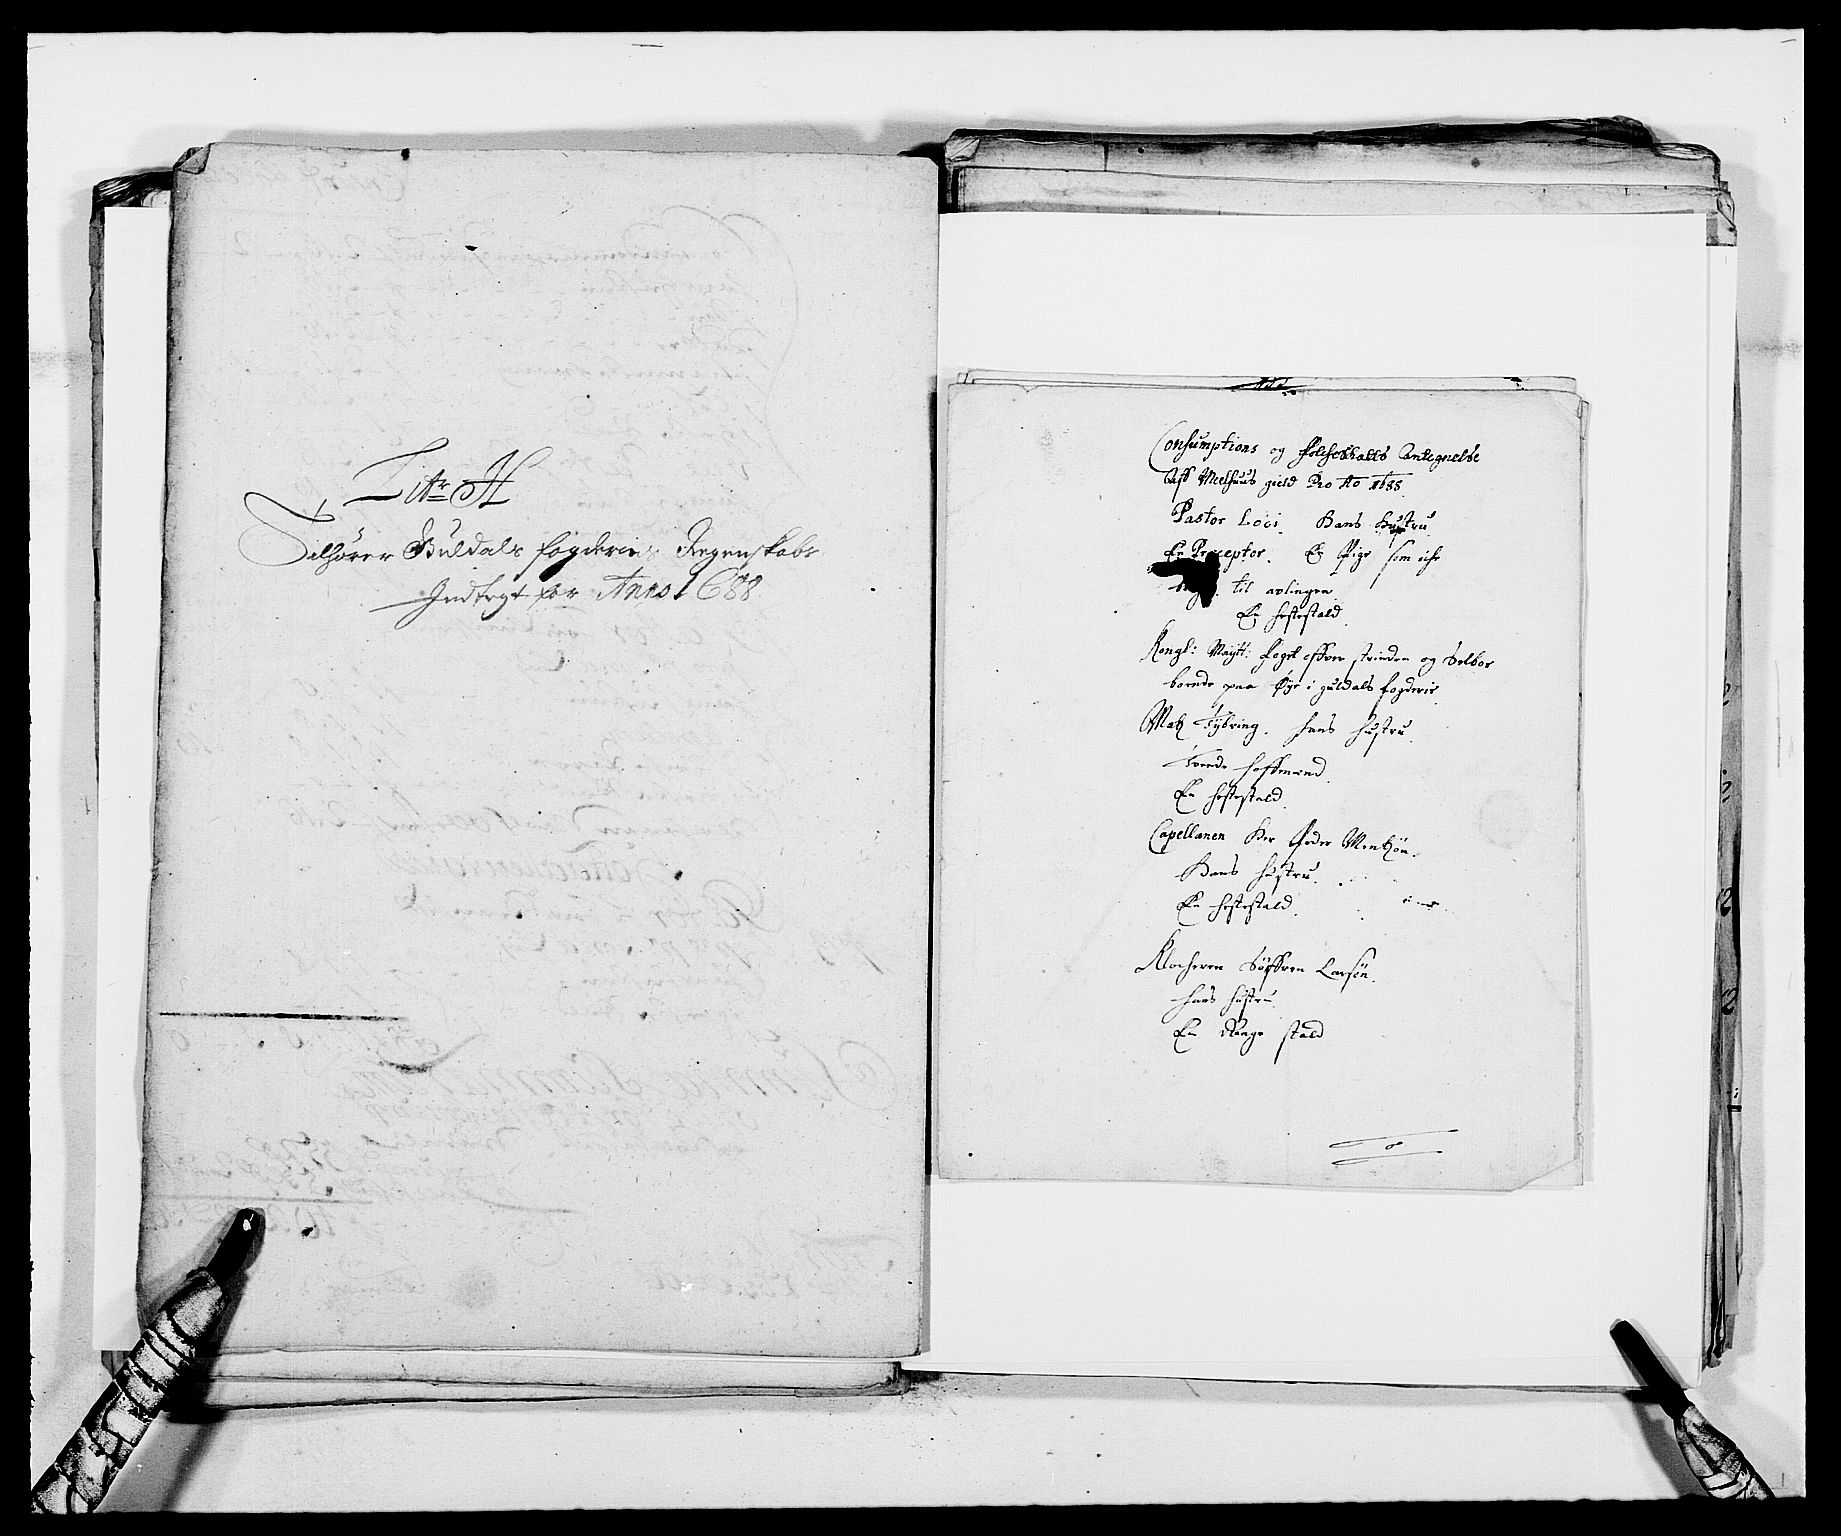 Litr H
Tilhører Guldals fogderies Regenskabs
Indtegt for Anno 1688
Consumptions og Folcheskatts Antegnelse
Aff Melhuus gield Pro Ao 1688
Pastor Loci Hans Hustru
En Preceptor. En Pige som iche
til avlingen
En hestestald
Kongl: Maytt: foget offver strinden og Selboe
boende paa Øye i guldals fogderie
Matz Tybring. hans hustru
Tvende hoffmend
En hestestald
Capellanen Her Peder Mentzön.
Hans hustru.
En hestestald.
Klocheren Söffren Larsön.
hans hustru
En stald